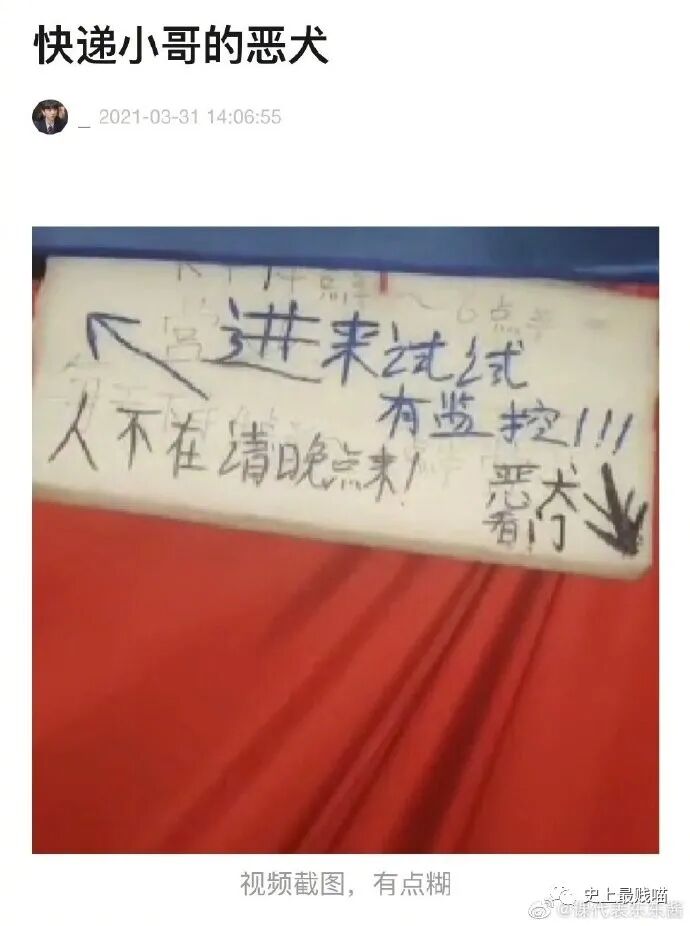 快递小哥的恶犬
_ 2021-03-31 14:06:55
点半~6点半
进来试试
有监控!!!
人不在请晚点来!
恶犬
看门
视频截图，有点糊
史上最贱喵
@课代表东东酱